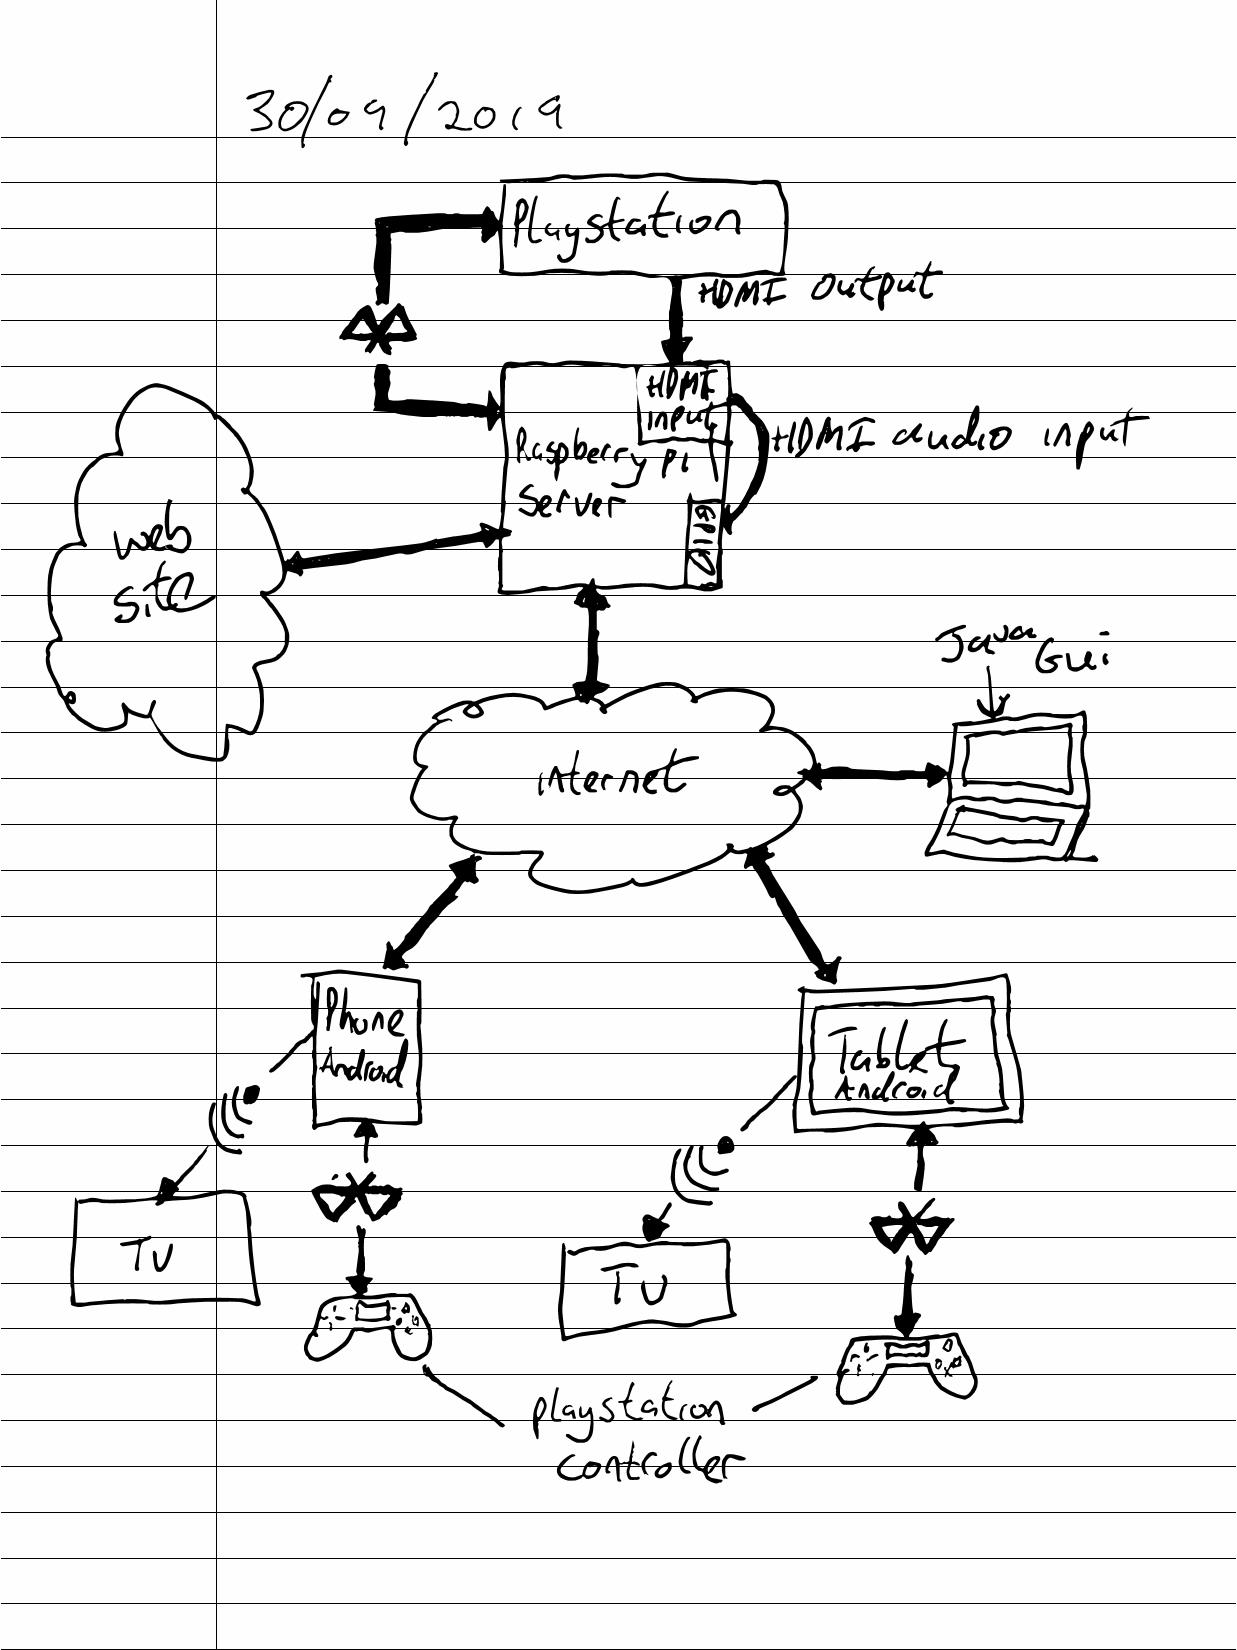 30/09/2019
Playstation
HDMI output
HDMI
input
HDMI audio input
Raspberry Pi
Server
GPIO
web
site
Java Gui
internet
Phone
Android
Tablet
Android
TV
TV
playstation
controller